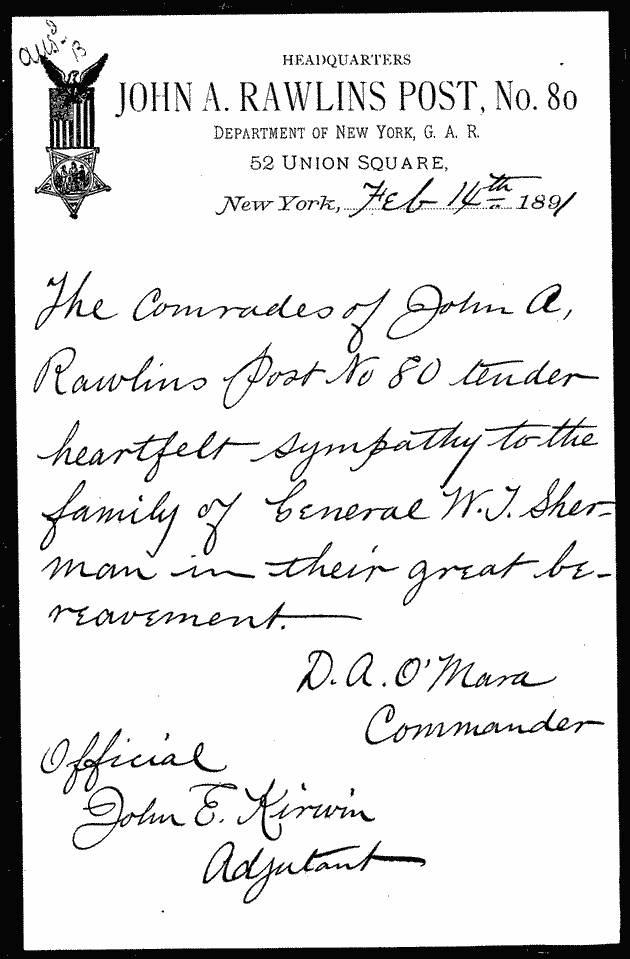 HEADQUARTERS
JOHN A. RAWLINS POST, No. 80
DEPARTMENT OF NEW YORK, G. A. R.
52 UNION SQUARE,
New York, Feb 14th 1891
The Comrades of John A,
Rawlins Post No 80 tender
heartfelt sympathy to the
family of General W. T. Sher-
man in their great be-
reavement.
D. A. O'Mara
Commander
Official
John E. Kirwin
Adjutant